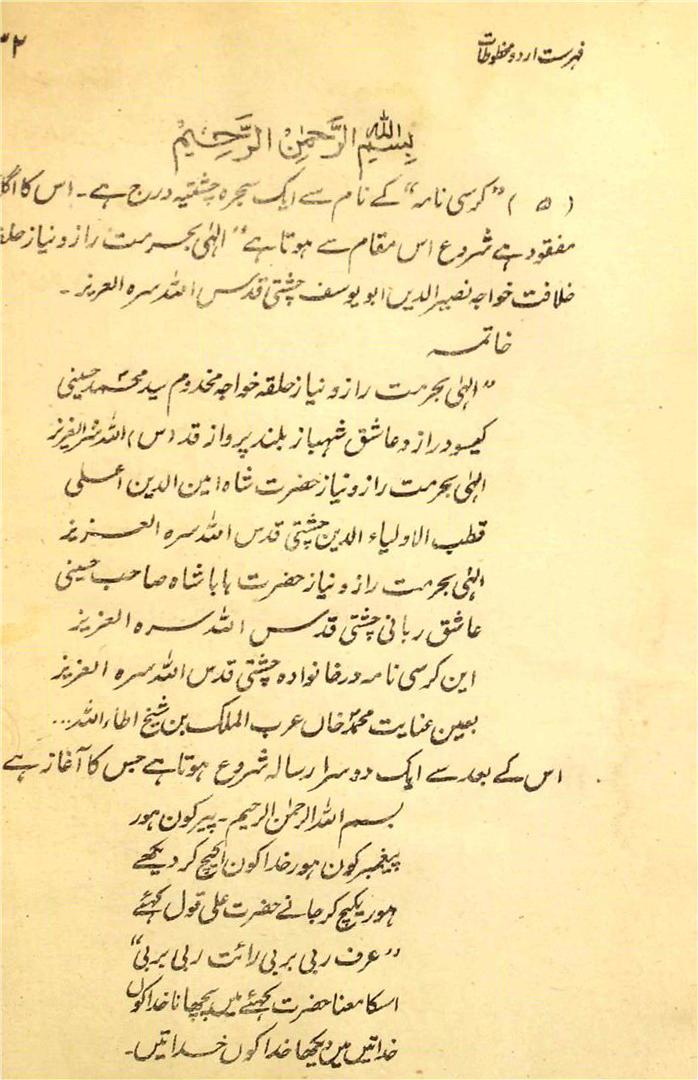 فہرست اردو مخطوطات
۳۲
بِسْمِ اللهِ الرَّحْمٰنِ الرَّحِيْمِ
( ۵ ) ”کرسی نامہ“ کے نام سے ایک سجرہ چشتیہ درج ہے۔ اس کا
مفقود ہے شروع اس مقام سے ہوتا ہے ”الہٰی بحرمت راز و نیاز
خلافت خواجہ نصیر الدین ابو یوسف چشتی قدس اللہ سرہ العزیز۔
خاتمہ
”الہٰی بحرمت راز و نیاز حلقہ خواجہ مخدوم سید محمد حسینی
گیسودراز و عاشق شہباز بلند پرواز قد (س) اللہ سرہ العزیز
الہٰی بحرمت راز و نیاز حضرت شاہ امین الدین اعلی
قطب الاولیاء الدین چشتی قدس اللہ سرہ العزیز
الہٰی بحرمت راز و نیاز حضرت بابا شاہ صاحب حسینی
عاشق ربانی چشتی قدس اللہ سرہ العزیز
این کرسی نامہ در خانوادہ چشتی قدس اللہ سرہ العزیز
بعین عنایت محمد خاں عرب الملک بن شیخ اطاء اللہ...
اس کے بعد سے ایک دوسرا رسالہ شروع ہوتا ہے جس کا آغاز ہے
بسم اللہ الرحمٰن الرحیم۔ پیر کون ہور
پیغمبر کون ہور خدا کون ایکیچ کر دیکھے
ہور یکیچ کر جانے حضرت علی قول کہئے
”عرف ربی بربی رائت ربی بربی“
اسکا معنا حضرت کہئے میں پچھانا خدا کوں
خدا تیں میں دیکھا خدا کوں خدا تیں۔